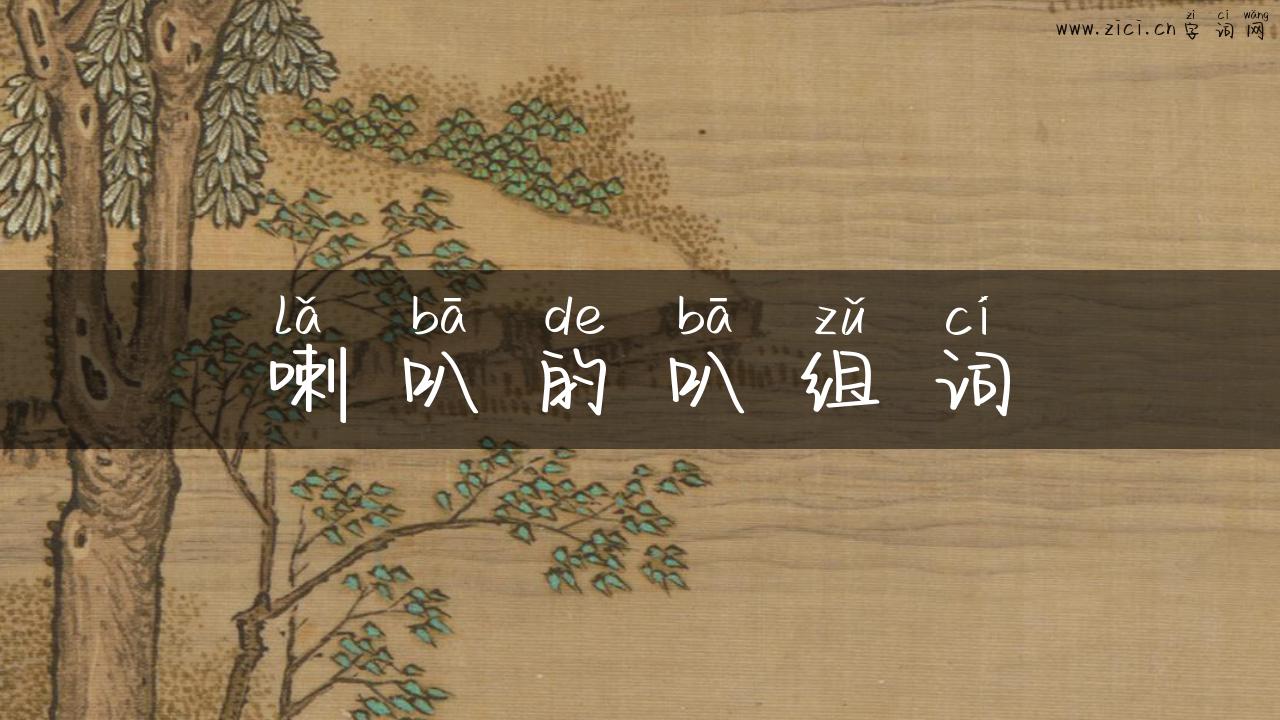 zì cí wǎng
www.zici.cn 字词网
lǎ bā de bā zǔ cí
喇叭的叭组词